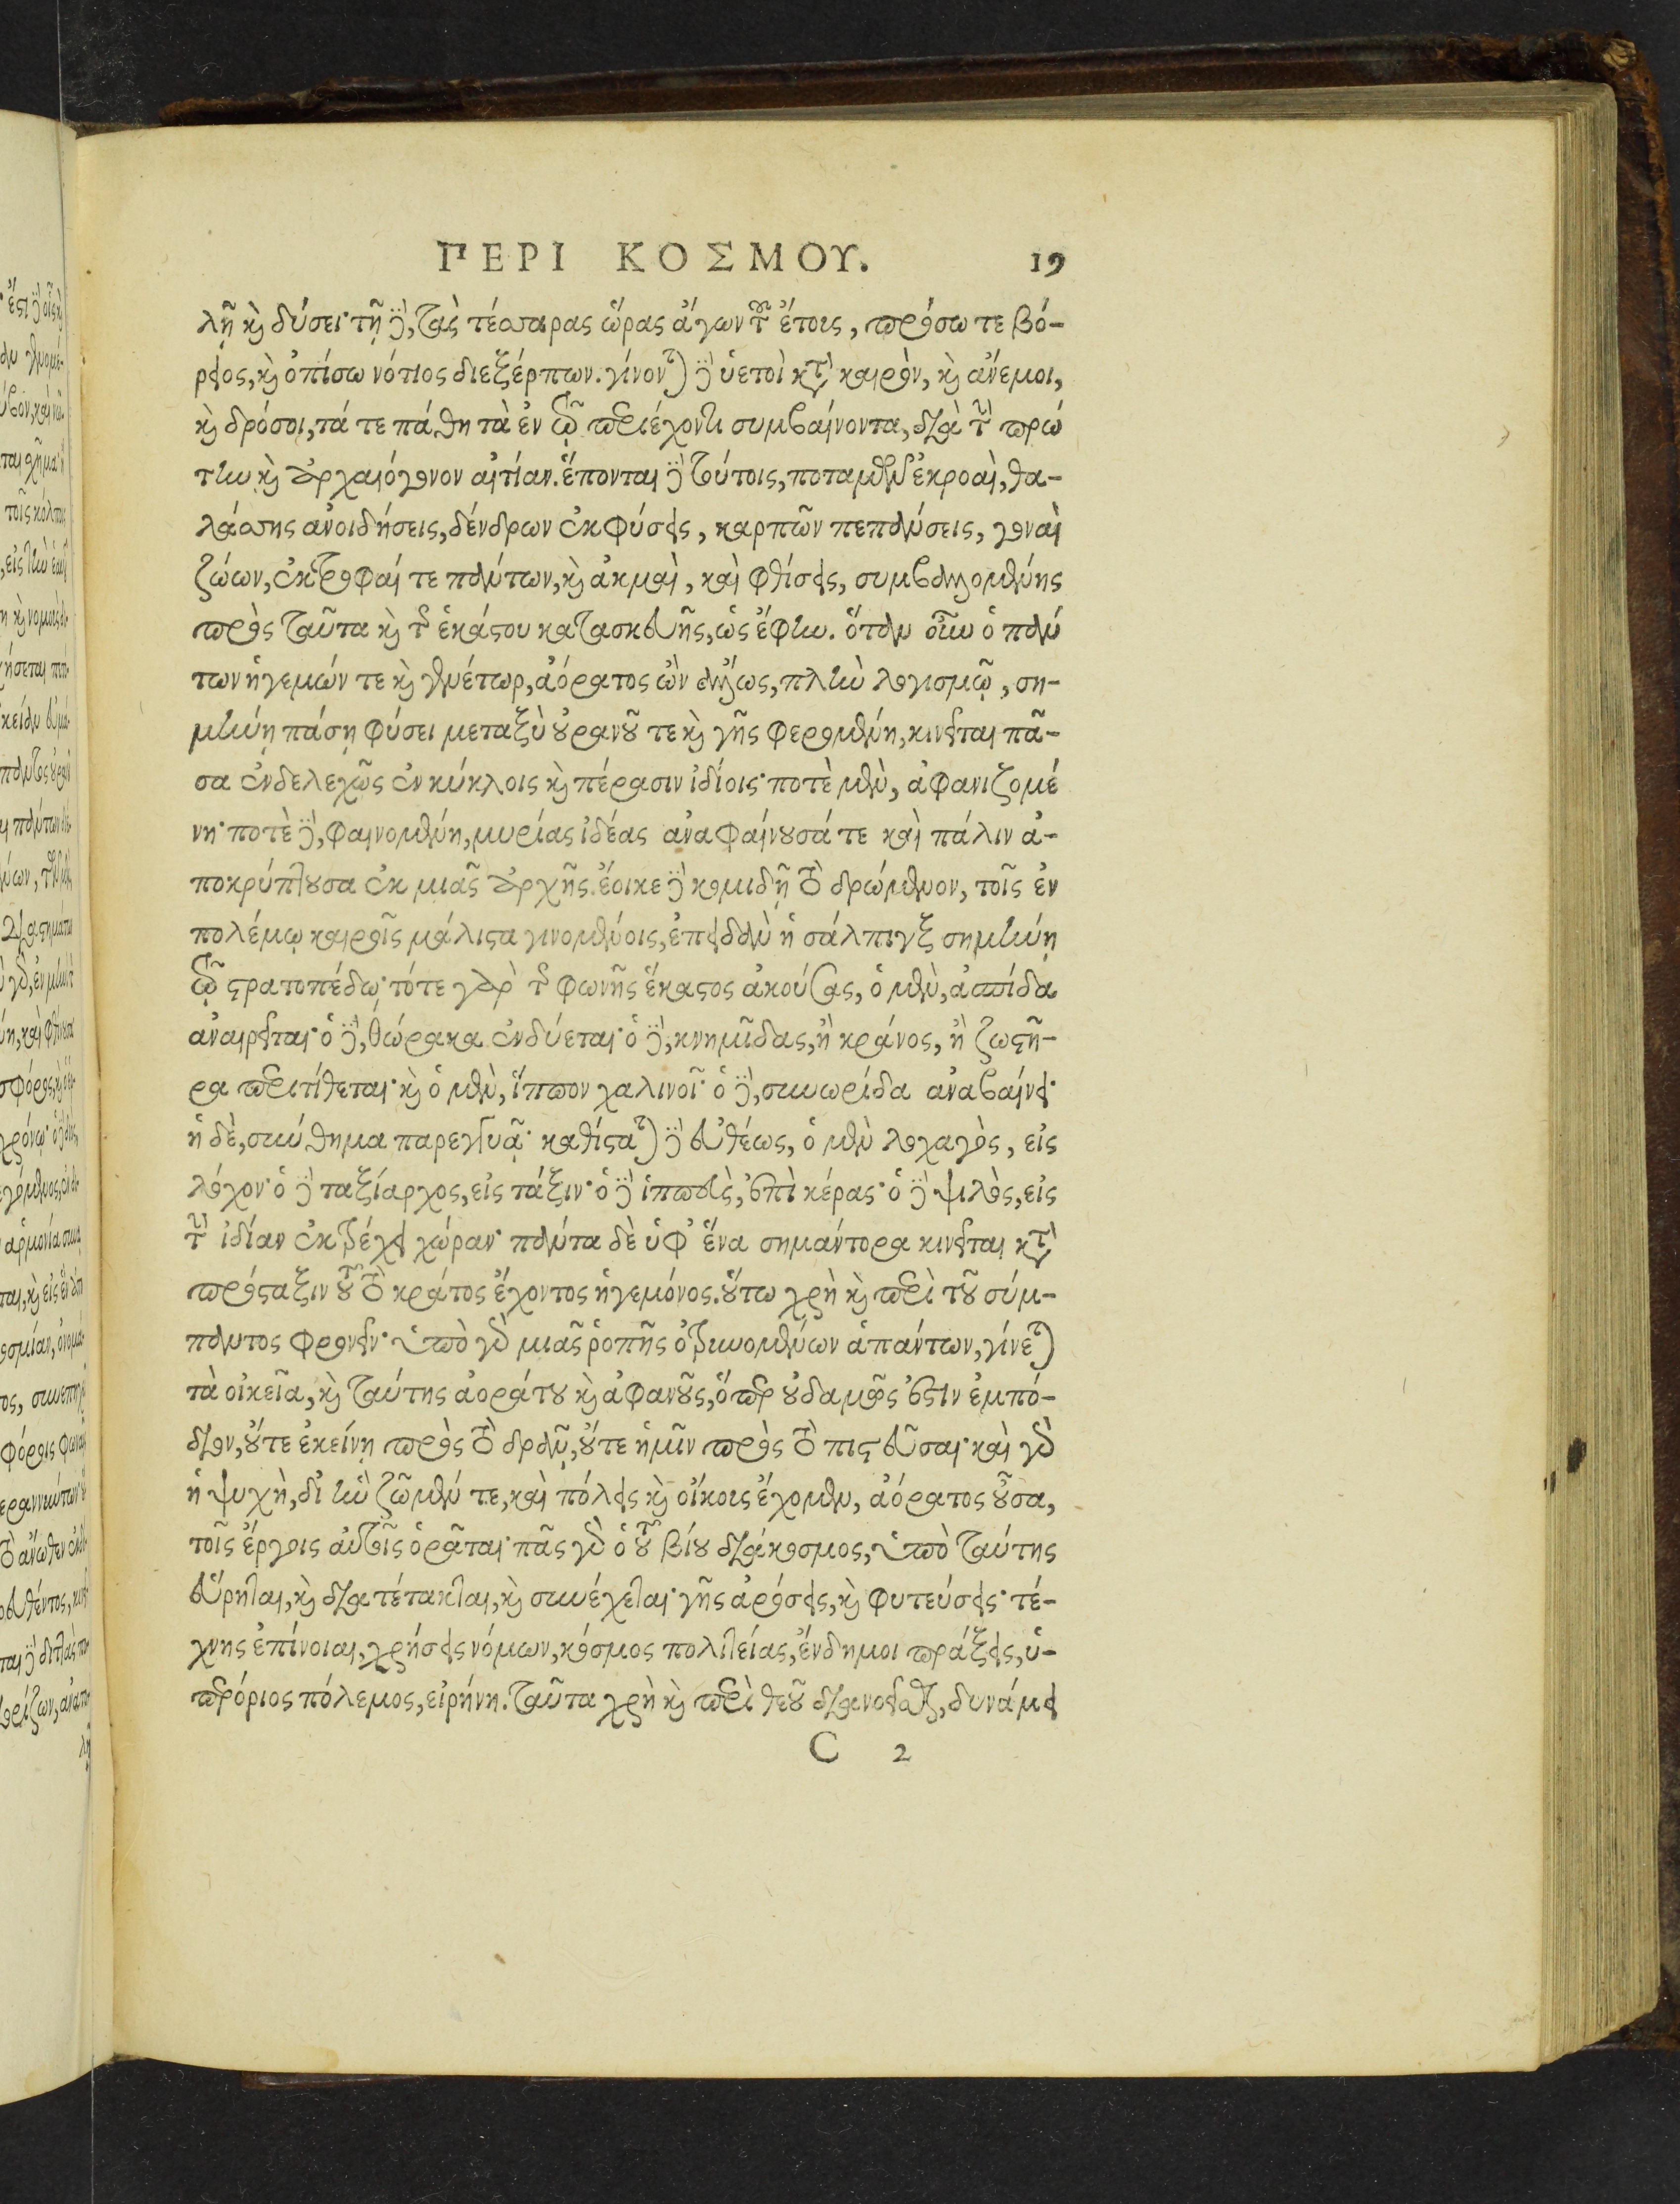 ΠΕΡΙ ΚΟΣΜΟΥ. 19
λῇ καὶ δύσει· τῇ δὲ, τὰς τέσσαρας ὥρας ἄγων τοῦ ἔτους, πρόσω τε βό-
ρειος, καὶ ὀπίσω νότιος διεξέρπων. γίνονται δὲ ὑετοὶ κατὰ καιρὸν, καὶ ἄνεμοι,
καὶ δρόσοι, τά τε πάθη τὰ ἐν τῷ περιέχοντι συμβαίνοντα, διὰ τὴν πρώ
την καὶ ἀρχαιόγονον αἰτίαν. ἕπονται δὲ τούτοις, ποταμῶν ἐκροαὶ, θα-
λάσσης ἀνοιδήσεις, δένδρων ἐκφύσεις, καρπῶν πεπάνσεις, γοναὶ
ζώων, ἐκτροφαί τε πάντων, καὶ ἀκμαὶ, καὶ φθίσεις, συμβαλλομένης
πρὸς ταῦτα καὶ τῆς ἑκάστου κατασκευῆς, ὡς ἔφην. ὅταν οὖν ὁ πάν
των ἡγεμών τε καὶ γενέτωρ, ἀόρατος ὢν ἄλλως, πλὴν λογισμῷ, ση-
μήνῃ πάσῃ φύσει μεταξὺ οὐρανοῦ τε καὶ γῆς φερομένῃ, κινεῖται πᾶ-
σα ἐνδελεχῶς ἐν κύκλοις καὶ πέρασιν ἰδίοις· ποτὲ μὲν, ἀφανιζομέ
νη· ποτὲ δὲ, φαινομένη, μυρίας ἰδέας ἀναφαίνουσά τε καὶ πάλιν ἀ-
ποκρύπτουσα ἐκ μιᾶς ἀρχῆς. ἔοικε δὲ κομιδῇ τὸ δρώμενον, τοῖς ἐν
πολέμῳ καιροῖς μάλιστα γινομένοις, ἐπειδὰν ἡ σάλπιγξ σημήνῃ
τῷ στρατοπέδῳ· τότε γὰρ τῆς φωνῆς ἕκαστος ἀκούσας, ὁ μὲν, ἀσπίδα
ἀναιρεῖται· ὁ δὲ, θώρακα ἐνδύεται· ὁ δὲ, κνημῖδας, ἢ κράνος, ἢ ζωστῆ-
ρα περιτίθεται· καὶ ὁ μὲν, ἵππον χαλινοῖ· ὁ δὲ, συνωρίδα ἀναβαίνει·
ἡ δὲ, σύνθημα παρεγγυᾷ· καθίσταται δὲ εὐθέως, ὁ μὲν λοχαγὸς, εἰς
λόχον· ὁ δὲ ταξίαρχος, εἰς τάξιν· ὁ δὲ ἱππεὺς, ἐπὶ κέρας· ὁ δὲ ψιλὸς, εἰς
τὴν ἰδίαν ἐκτρέχει χώραν· πάντα δὲ ὑφ’ ἕνα σημάντορα κινεῖται κατὰ
πρόσταξιν τοῦ τὸ κράτος ἔχοντος ἡγεμόνος. οὕτω χρὴ καὶ περὶ τοῦ σύμ-
παντος φρονεῖν· ὑπὸ γὰρ μιᾶς ῥοπῆς ὀτρυνομένων ἁπάντων, γίνεται
τὰ οἰκεῖα, καὶ ταύτης ἀοράτου καὶ ἀφανοῦς, ὅπερ οὐδαμῶς ἐστιν ἐμπό-
διον, οὔτε ἐκείνῃ πρὸς τὸ δρᾶν, οὔτε ἡμῖν πρὸς τὸ πιστεῦσαι· καὶ γὰρ
ἡ ψυχὴ, δι’ ἣν ζῶμέν τε, καὶ πόλεις καὶ οἴκους ἔχομεν, ἀόρατος οὖσα,
τοῖς ἔργοις αὐτοῖς ὁρᾶται· πᾶς γὰρ ὁ τοῦ βίου διάκοσμος, ὑπὸ ταύτης
εὕρηται, καὶ διατέτακται, καὶ συνέχεται· γῆς ἀρόσεις, καὶ φυτεύσεις· τέ-
χνης ἐπίνοιαι, χρήσεις νόμων, κόσμος πολιτείας, ἔνδημοι πράξεις, ὑ-
περόριος πόλεμος, εἰρήνη. ταῦτα χρὴ καὶ περὶ θεοῦ διανοεῖσθαι, δυνάμει
C 2